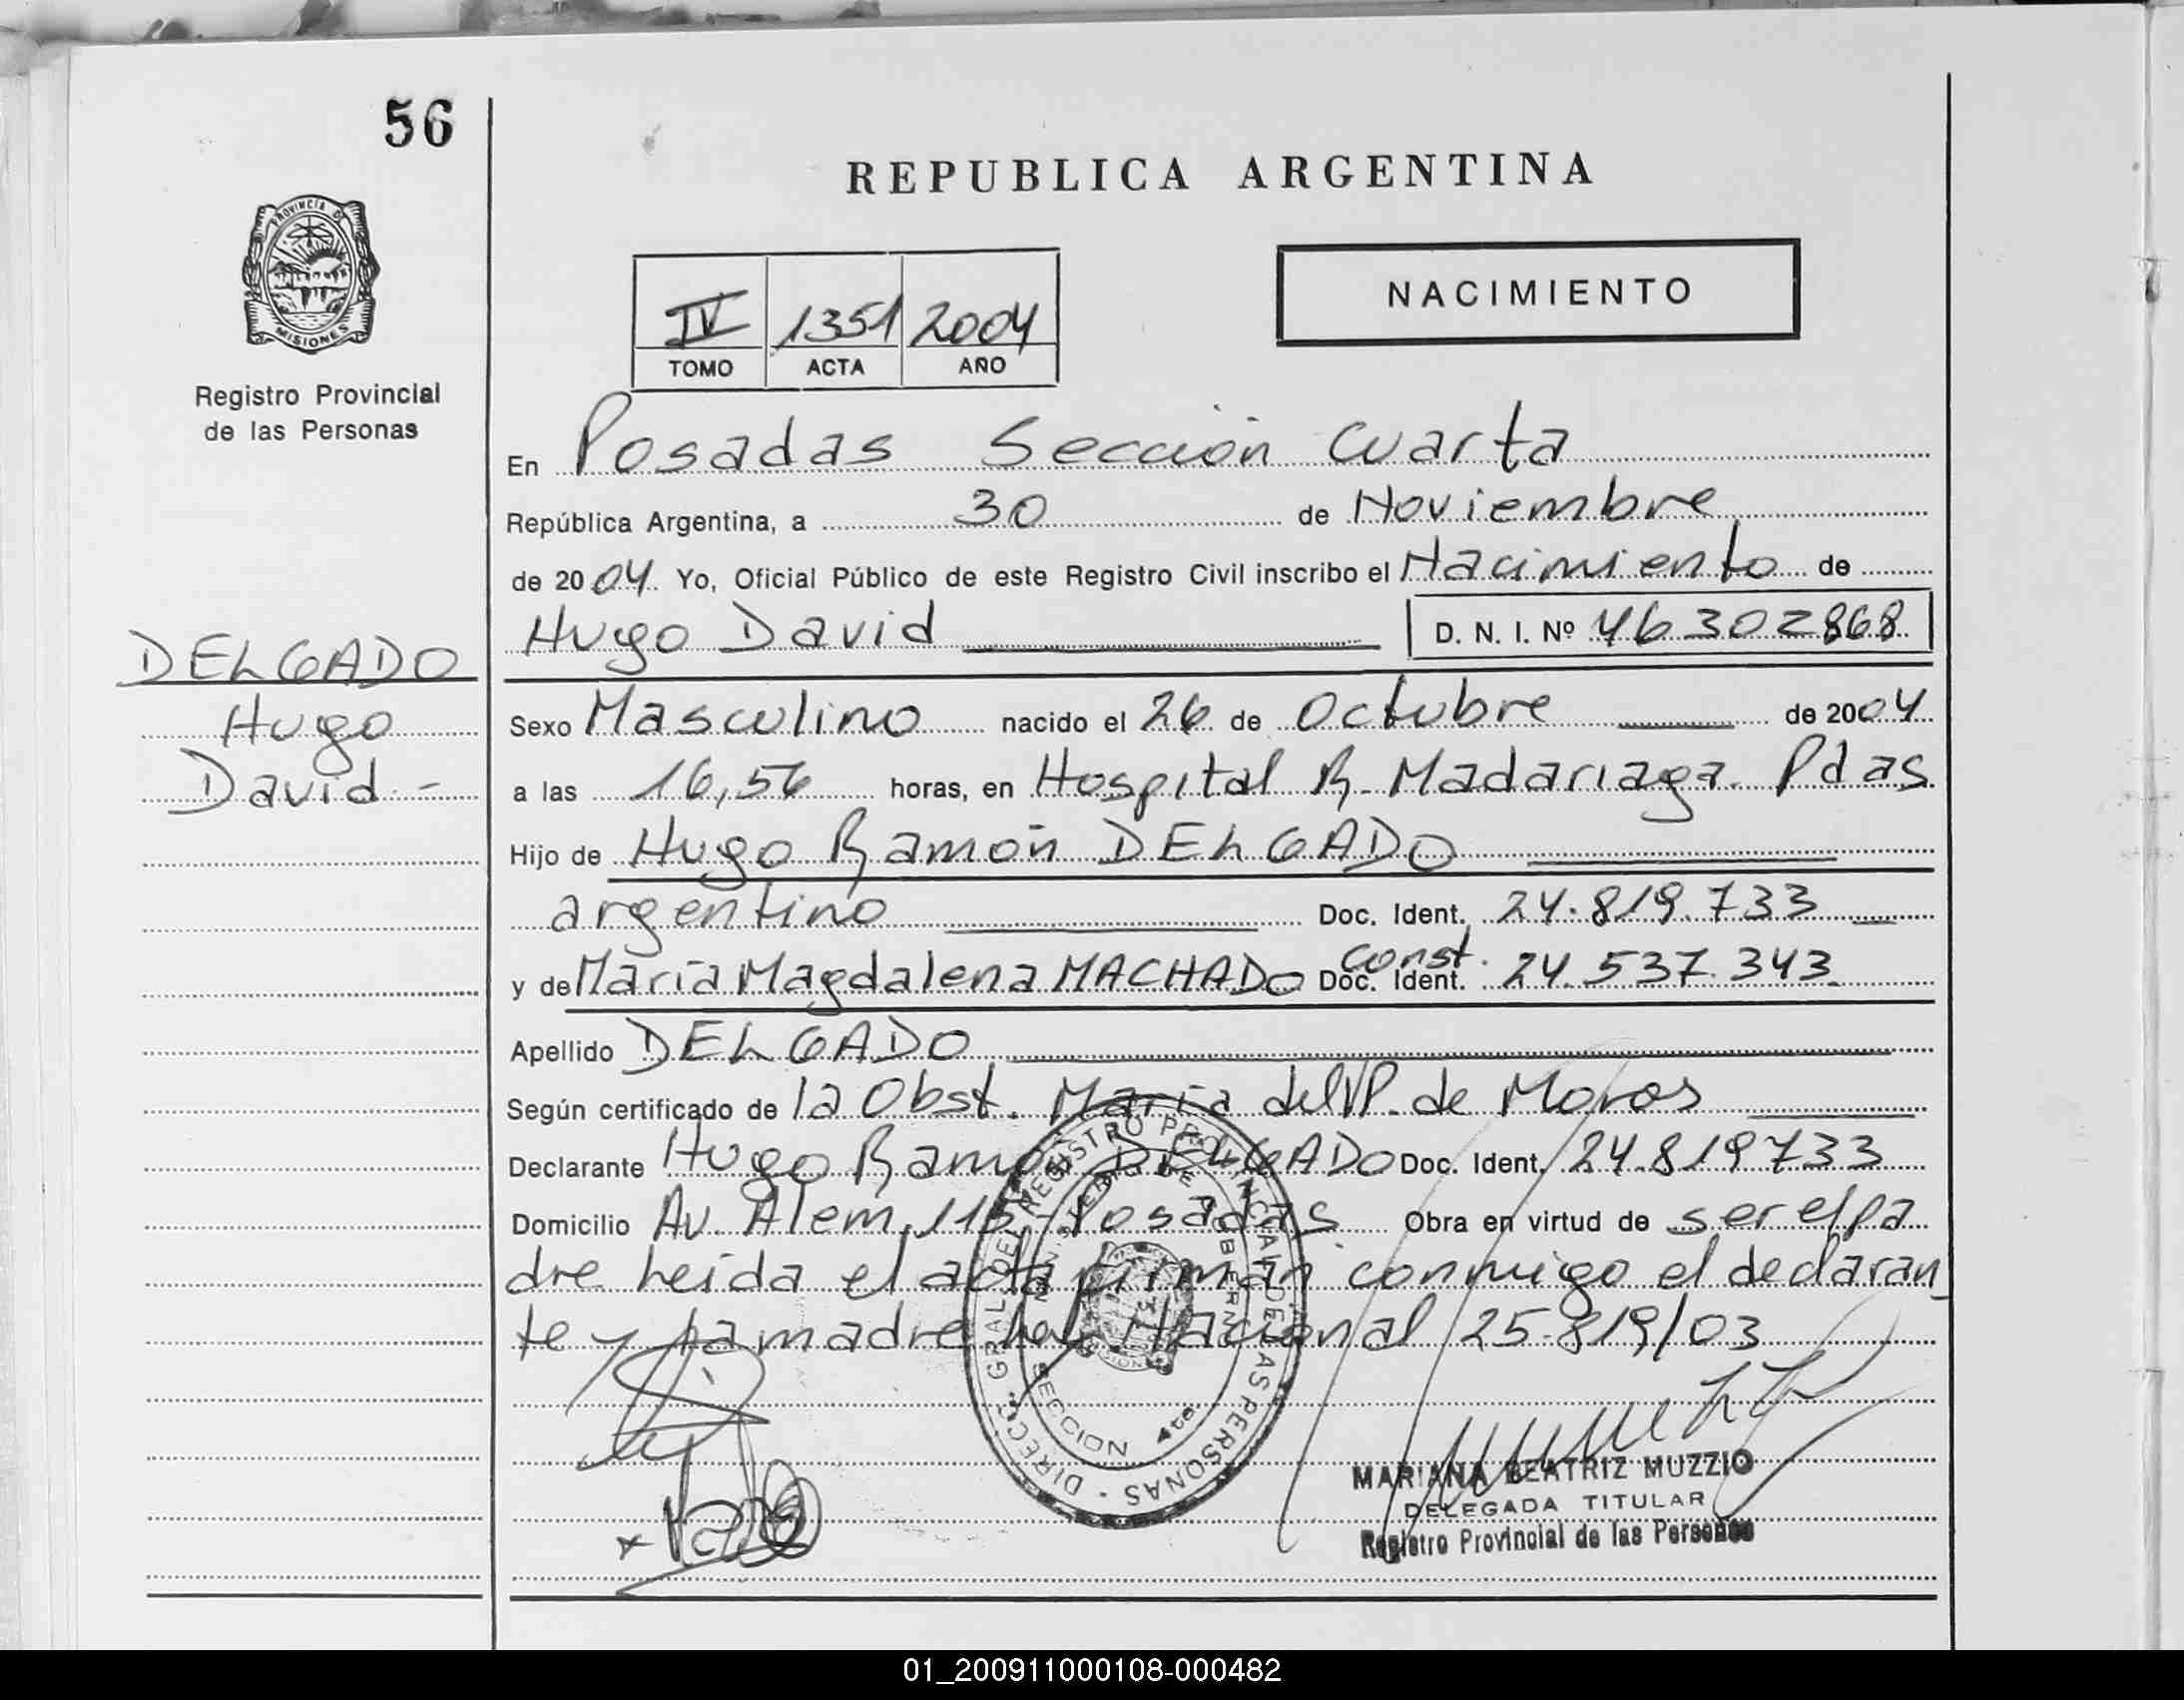 56
REPUBLICA ARGENTINA
PROVINCIA DE
MISIONES
Registro Provincial
de las Personas
IV 1351 2004
TOMO ACTA AÑO
NACIMIENTO
En Posadas Sección Cuarta
República Argentina, a 30 de Noviembre
de 2004 Yo, Oficial Público de este Registro Civil inscribo el Nacimiento de
Hugo David D. N. I. Nº 46302868
DELGADO
Hugo
David.-
Sexo Masculino nacido el 26 de Octubre de 2004
a las 16,56 horas, en Hospital R. Madariaga. Pdas
Hijo de Hugo Ramón DELGADO
argentino Doc. Ident. 24.819.733
y de María Magdalena MACHADO const. Doc. Ident. 24.537.343.
Apellido DELGADO
Según certificado de la Obst. María del P. de Moros
Declarante Hugo Ramón DELGADO Doc. Ident. 24.819733
Domicilio Av. Alem, 115, Posadas Obra en virtud de ser el pa
dre Leida el acta firman conmigo el declaran
te y la madre Nacional 25.819/03
DIREC. GRAL. DEL REGISTRO PROVINCIAL DE LAS PERSONAS
MINISTERIO DE GOBIERNO
SECCION 4ta.
MARIANA BEATRIZ MUZZIO
DELEGADA TITULAR
Registro Provincial de las Personas
01_200911000108-000482